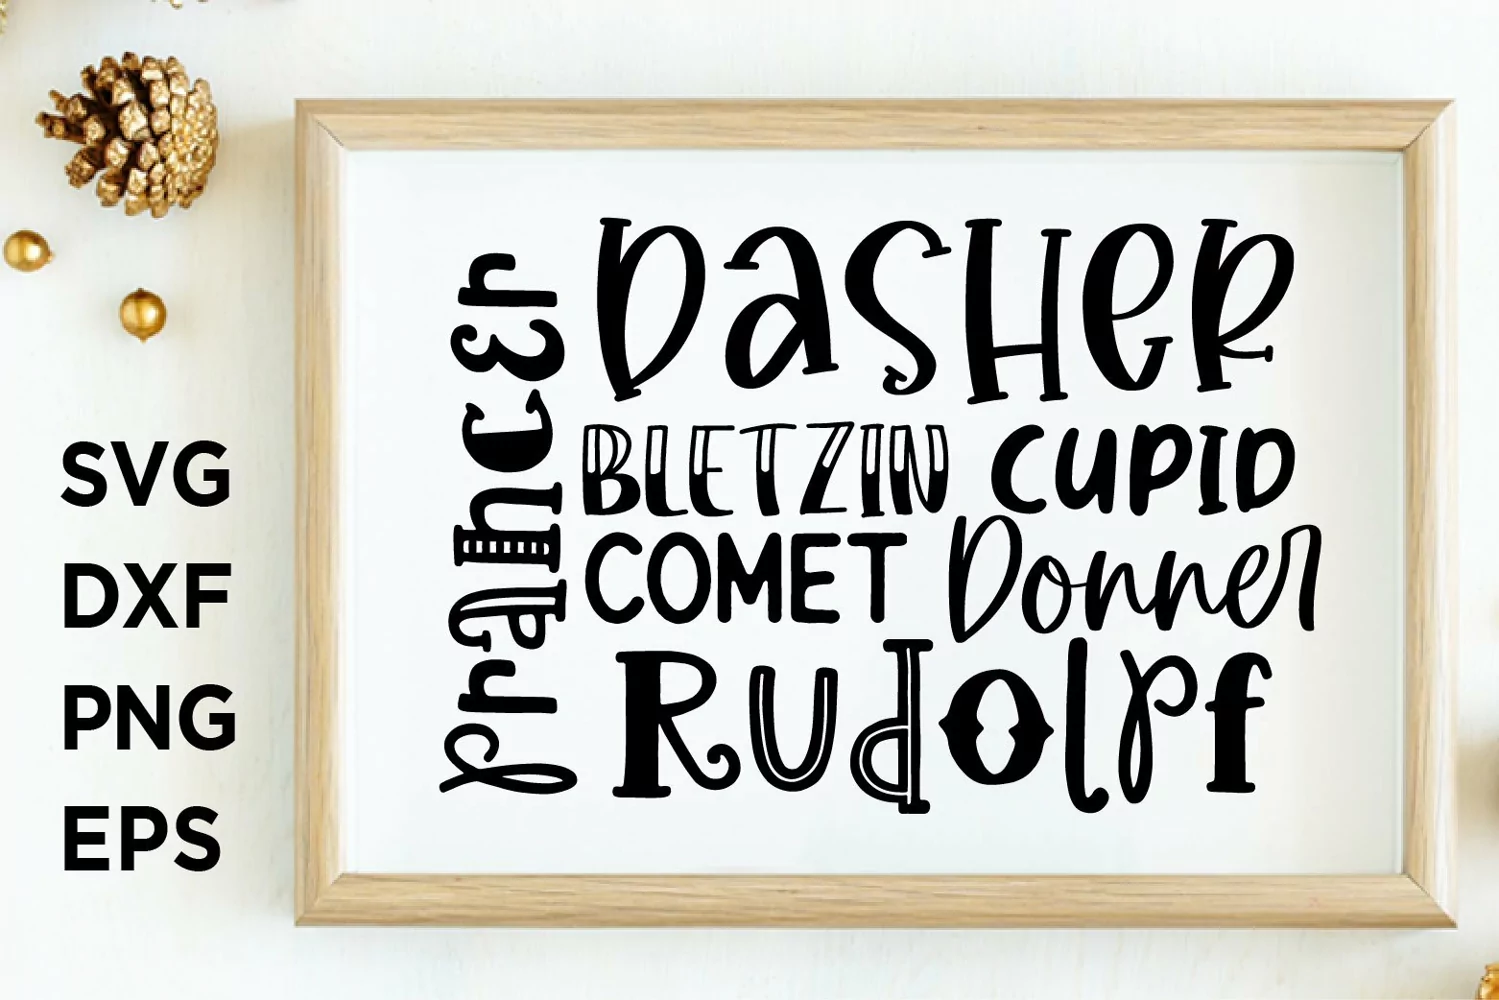 SVG
DXF
PNG
EPS
prancer
DASHER
BLETZIN CUPID
COMET Donner
Rudolpf